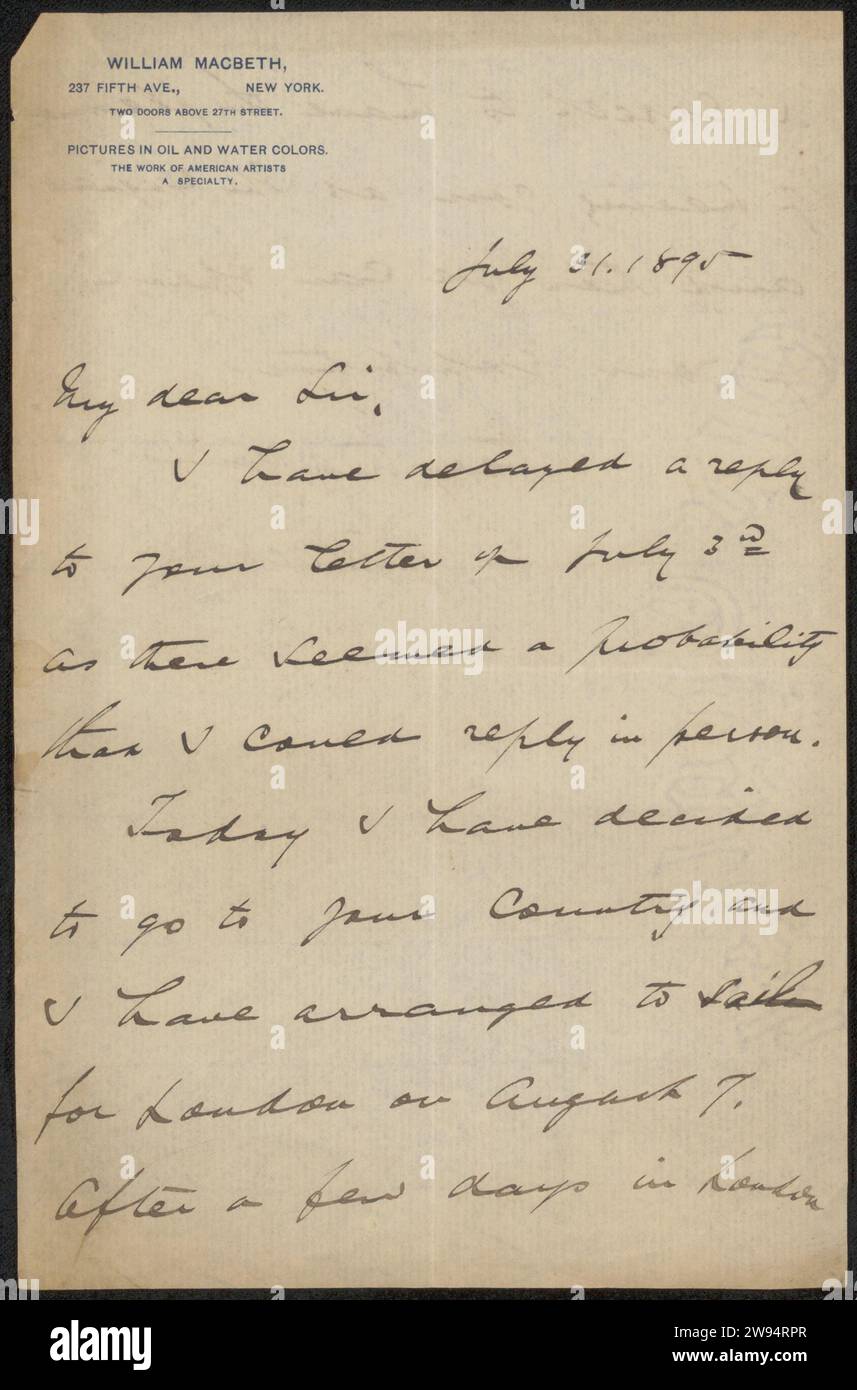 WILLIAM MACBETH,
237 FIFTH AVE., NEW YORK.
TWO DOORS ABOVE 27TH STREET.
PICTURES IN OIL AND WATER COLORS.
THE WORK OF AMERICAN ARTISTS
A SPECIALTY.
July 31. 1895
My dear Sir,
I have delayed a reply
to your letter of July 3rd
as there seemed a probability
that I could reply in person.
Today I have decided
to go to your Country and
I have arranged to sail
for London on August 7.
After a few days in London
alamy
Image ID: 2W94RPR
www.alamy.com